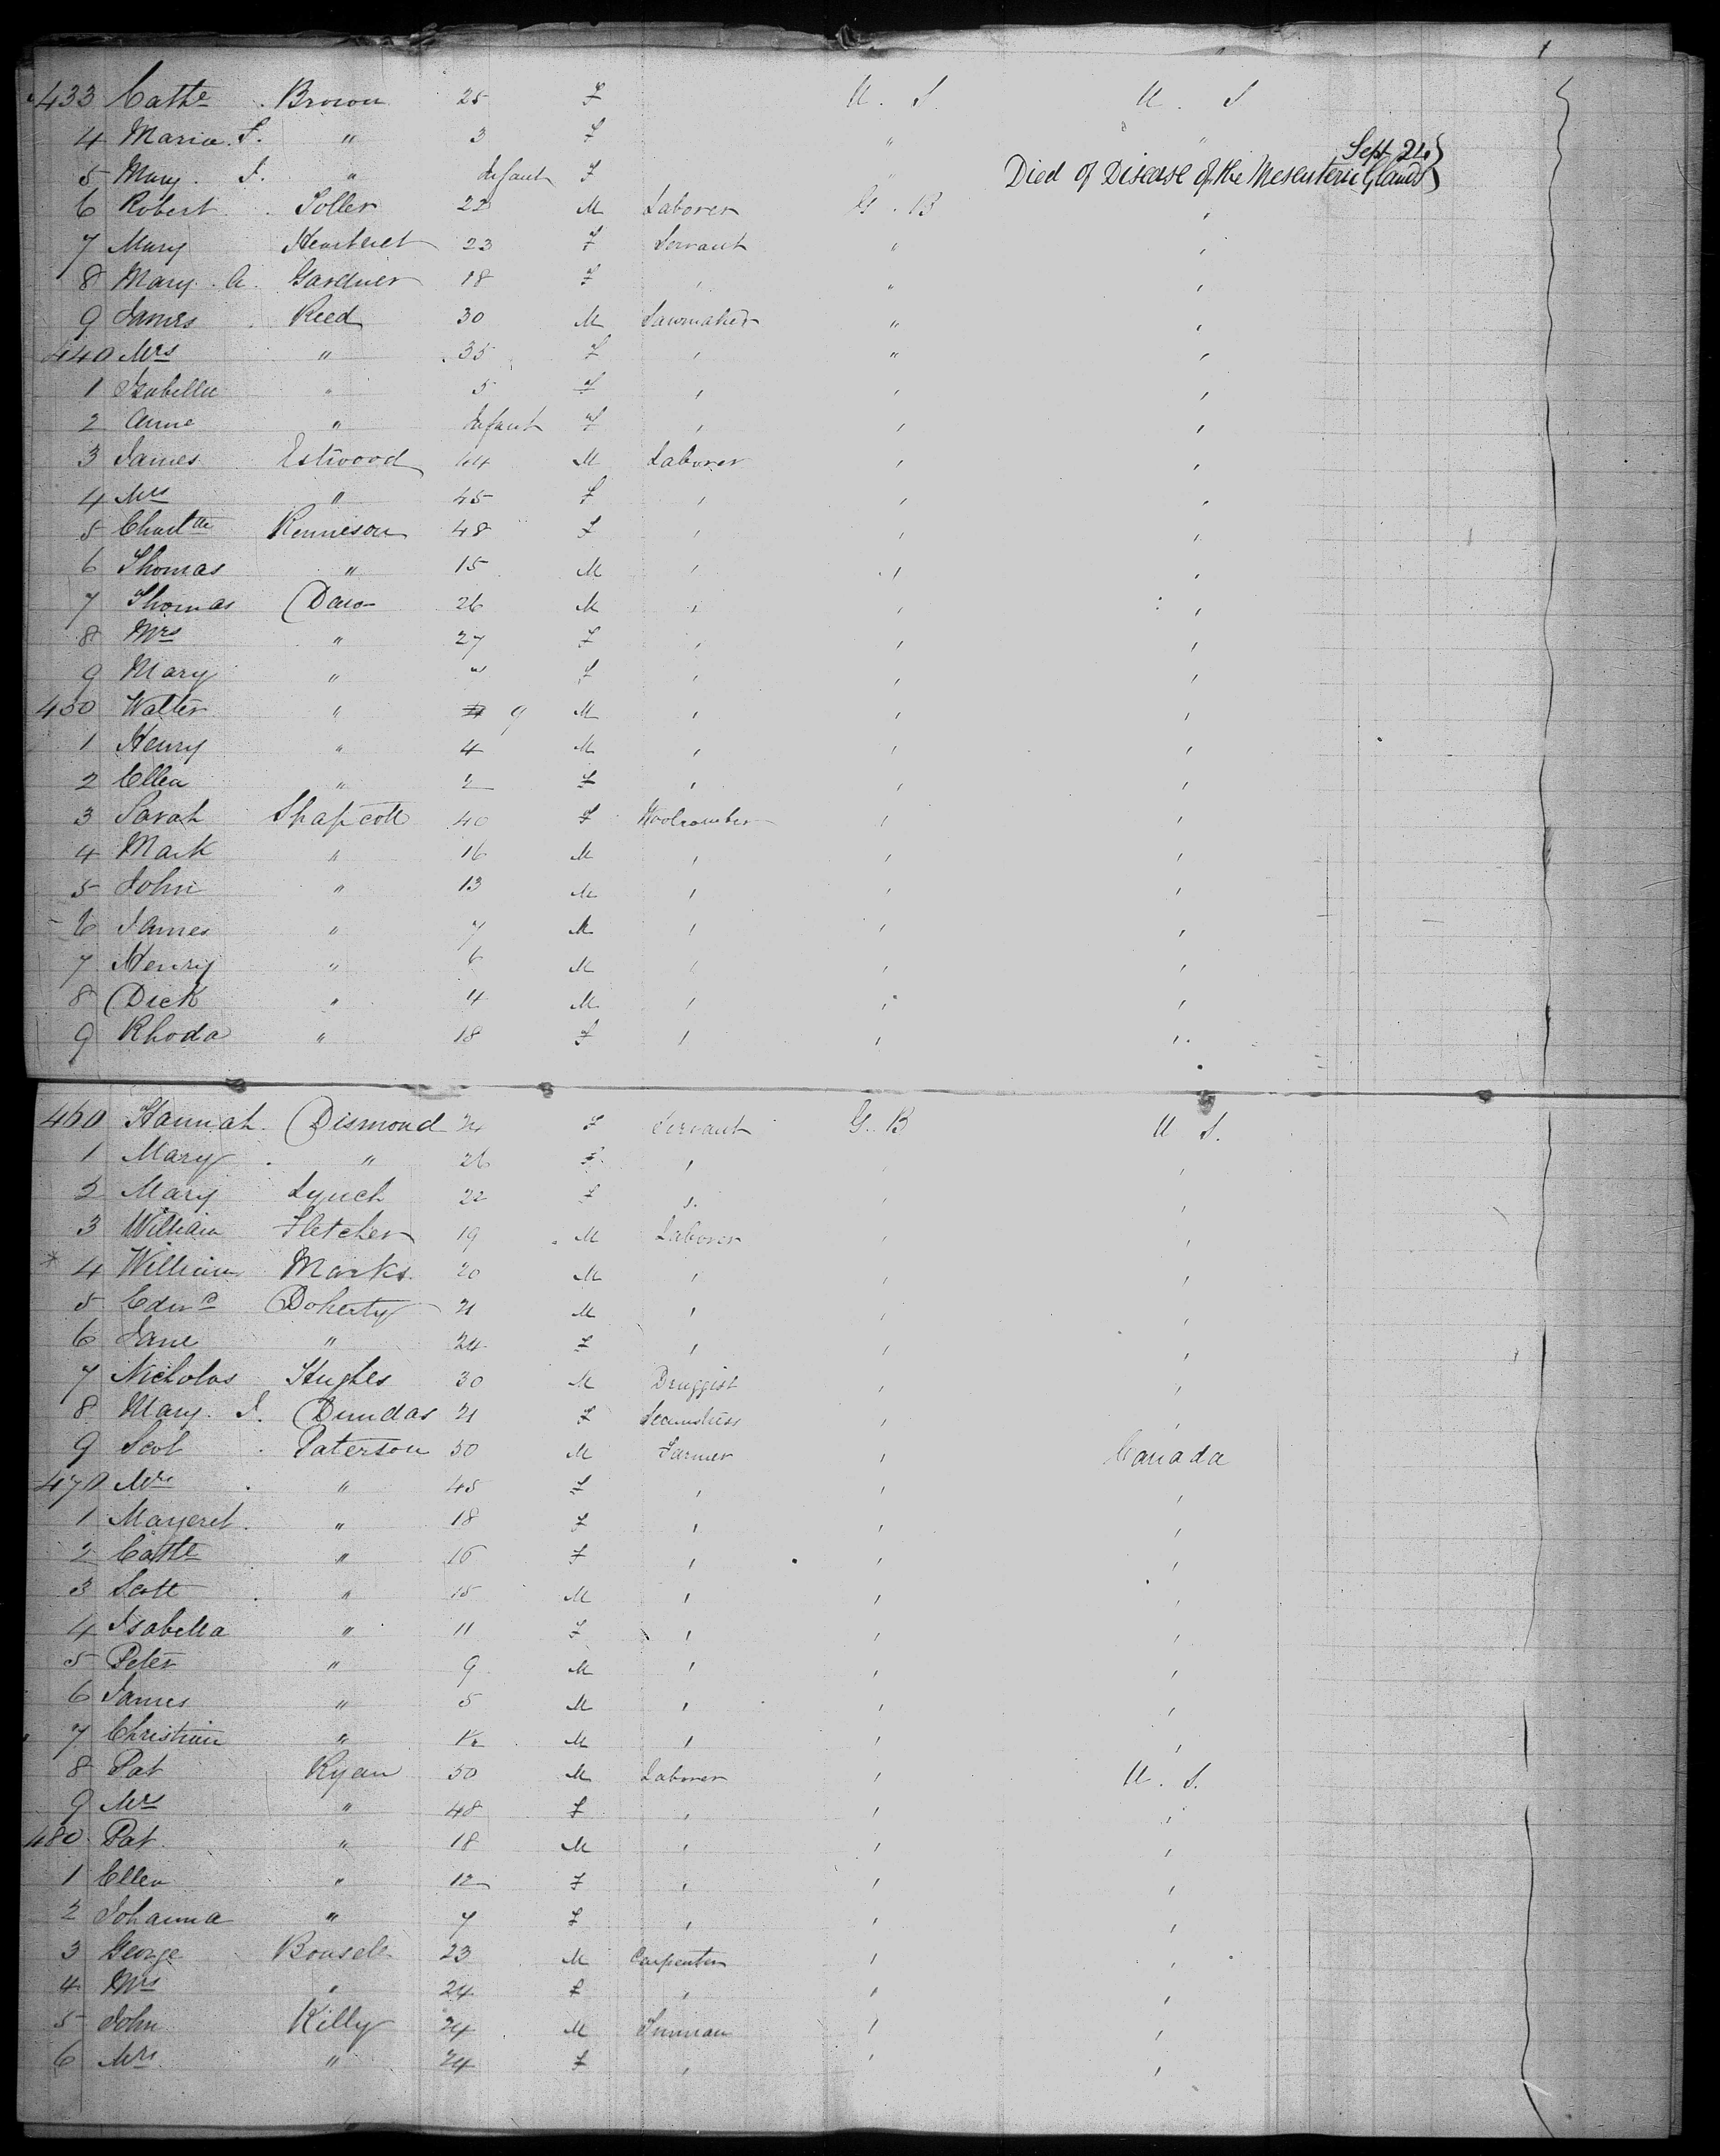 433 Cathe Brown 25 F U. S. U. S
4 Maria F. " 3 F " "
Sept 24
5 Mary J. " Infant F " Died of Disease of the Mesenteric Glands
6 Robert Soller 22 M Laborer G. B "
7 Mary 23 F Servant " "
8 Mary A. Gardner 18 F " " "
9 James Reed 30 M " "
440 Mrs " 35 F " " "
1 Isabella " 5 F " " "
2 Anne " Infant F " " "
3 James Estwood 44 M Laborer " "
4 Mrs " 45 F " " "
5 Charltte Kennieson 48 F " " "
6 Thomas " 15 M " " "
7 Thomas Daw 26 M " " "
8 Mrs " 27 F " " "
9 Mary " " F " " "
450 Walter " 9 M " " "
1 Henry " 4 M " " "
2 Ellen " 2 F " " "
3 Sarah Shapcott 40 F Woolcomber " "
4 Mark " 16 M " " "
5 John " 13 M " " "
6 James " 7 M " " "
7 Henry " 6 M " " "
8 Dick " 4 M " " "
9 Rhoda " 18 F " " "
460 Hannah Dismond 24 F Servant G. B U S.
1 Mary " 26 F " " "
2 Mary Lynch 22 F " " "
3 William Fletcher 19 M Laborer " "
* 4 William Marks 20 M " " "
5 Edwd Doherty 21 M " " "
6 Jane " 24 F " " "
7 Nicholas Hughes 30 M Druggist " "
8 Mary J. Dundas 21 F Seamstress " "
9 Scot Paterson 50 M Farmer " Canada
470 Mrs " 45 F " " "
1 Margeret " 18 F " " "
2 Cathe " 16 F " " "
3 Scott " 15 M " " "
4 Isabella " 11 F " " "
5 Peter " 9 M " " "
6 James " 5 M " " "
7 Christian " M " " "
8 Pat Ryan 50 M Laborer " U. S.
9 Mrs " 48 F " " "
480 Pat " 18 M " " "
1 Ellen " 12 F " " "
2 Johanna " 7 F " " "
3 George 23 M Carpenter " "
4 Mrs " 24 F " " "
5 John Killy 24 M " "
6 Mrs " 24 F " " "